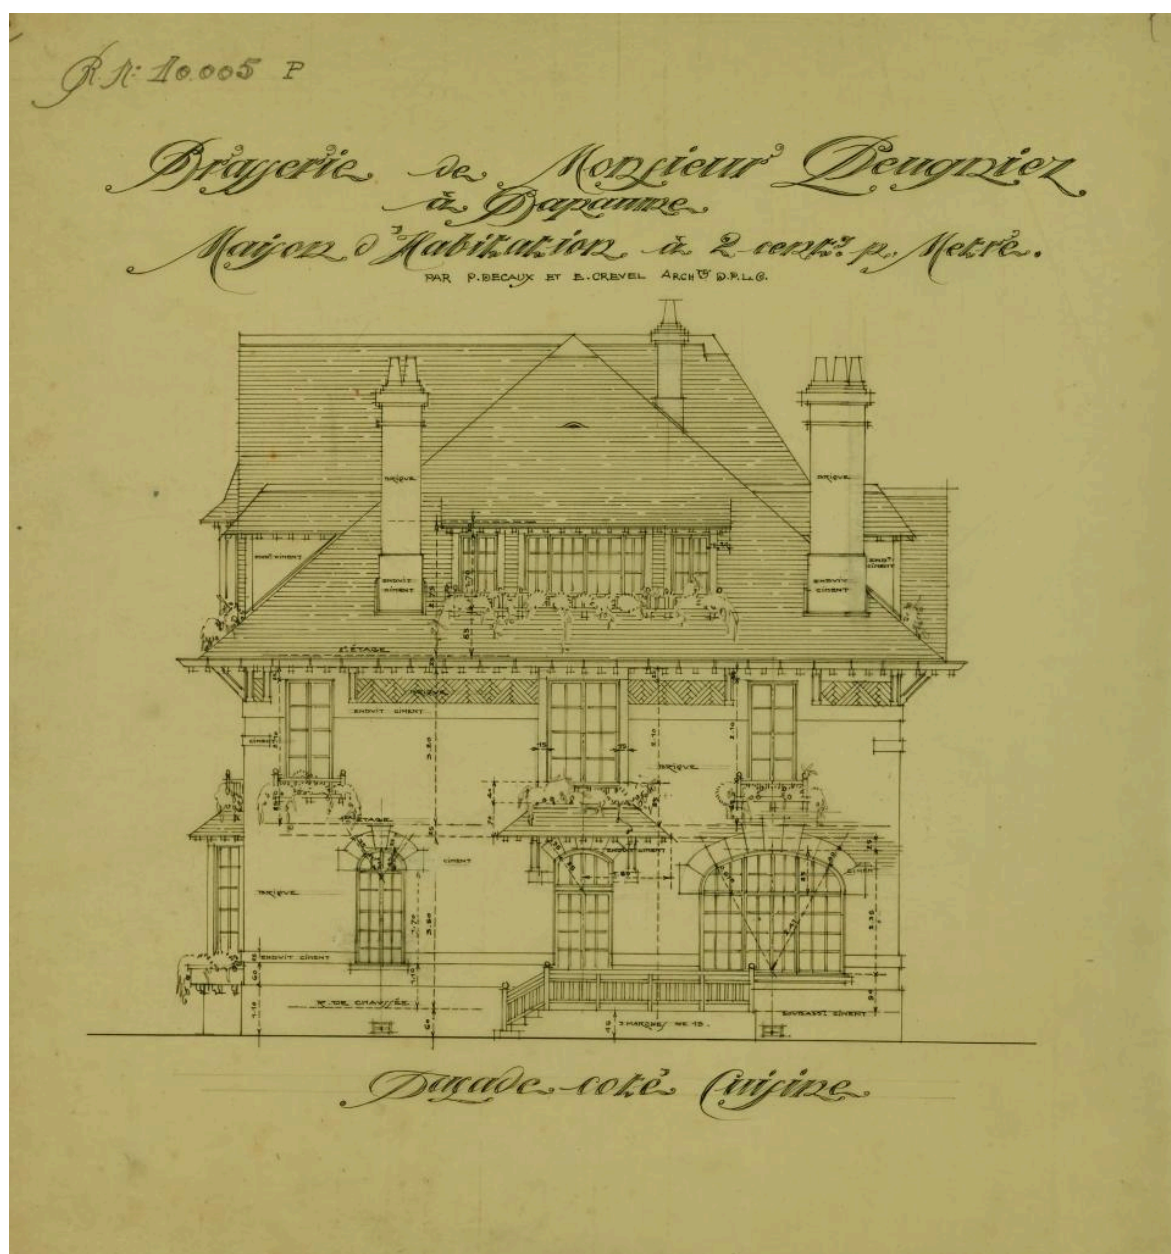 R. N: 10.005 P
Brasserie de Monsieur Peugniez
à Bapaume
Maison d'Habitation à 2 centr. p. Metre.
PAR P. DECAUX ET E. CREVEL ARCHTS D.P.L.G.
BRIQUE
BRIQUE
ENDUIT
CIMENT
ENDUIT
CIMENT
ENDT
CIMENT
2e ÉTAGE
BRIQUE
ENDUIT CIMENT
CIMENT
BRIQUE
1er ÉTAGE
ENDUIT CIMENT
CIMENT
CIMENT
BRIQUE
ENDUIT CIMENT
R. DE CHAUSSÉE
3 MARCHES DE 15.
SOUBASST CIMENT
Façade coté Cuisine